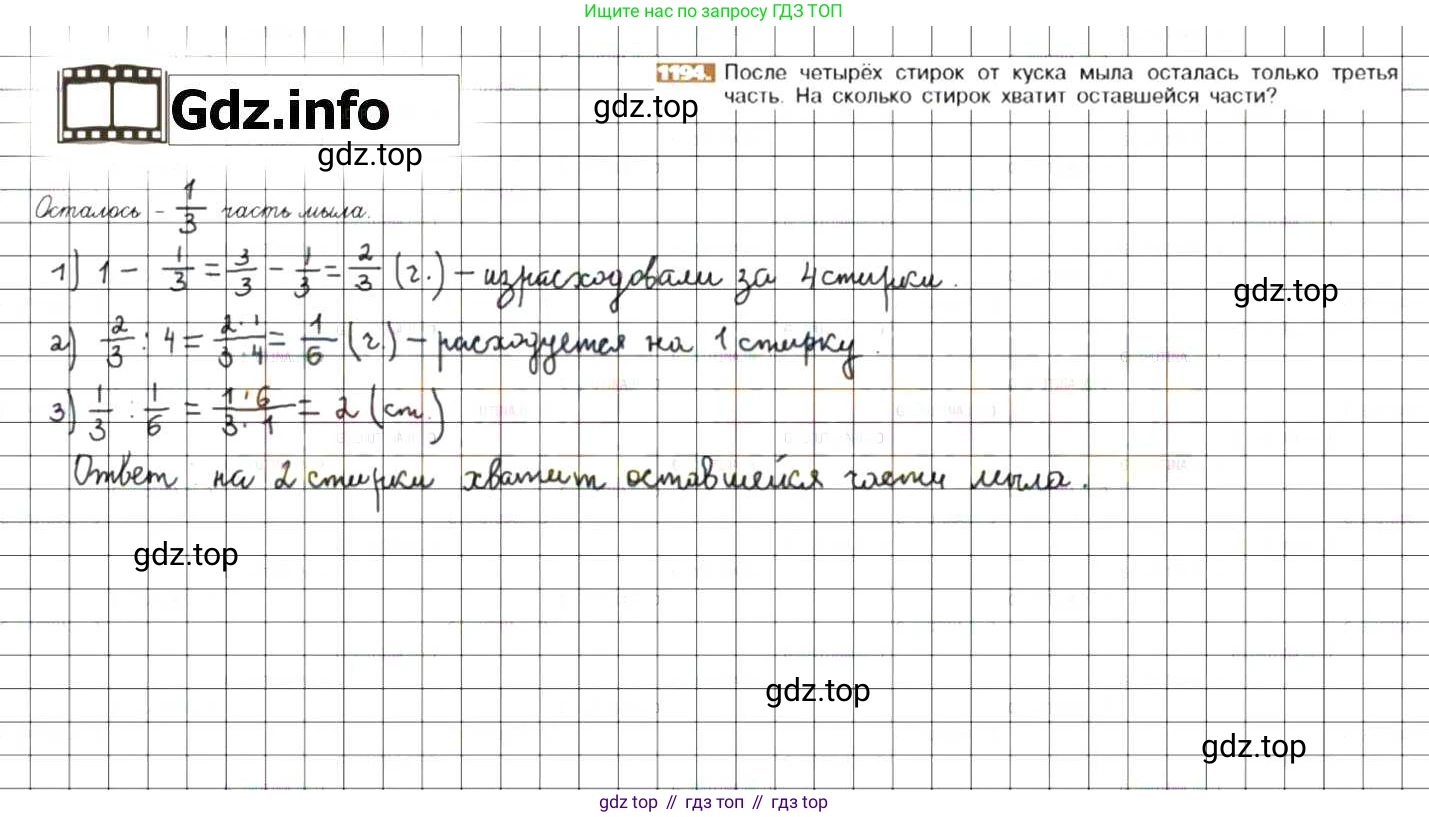 Ищите нас по запросу ГДЗ ТОП
1194. После четырёх стирок от куска мыла осталась только третья
часть. На сколько стирок хватит оставшейся части?
gdz.top
Gdz.info
gdz.top
Осталось - 1/3 часть мыла.
1) 1 - 1/3 = 3/3 - 1/3 = 2/3 (ч.) - израсходовали за 4 стирки.
gdz.top
2) 2/3 : 4 = 2·1/3·4 = 1/6 (ч.) - расходуется на 1 стирку.
3) 1/3 : 1/6 = 1·6/3·1 = 2 (ст.)
Ответ на 2 стирки хватит оставшейся части мыла.
gdz.top
gdz.top
gdz.top
gdz top // гдз топ // gdz top